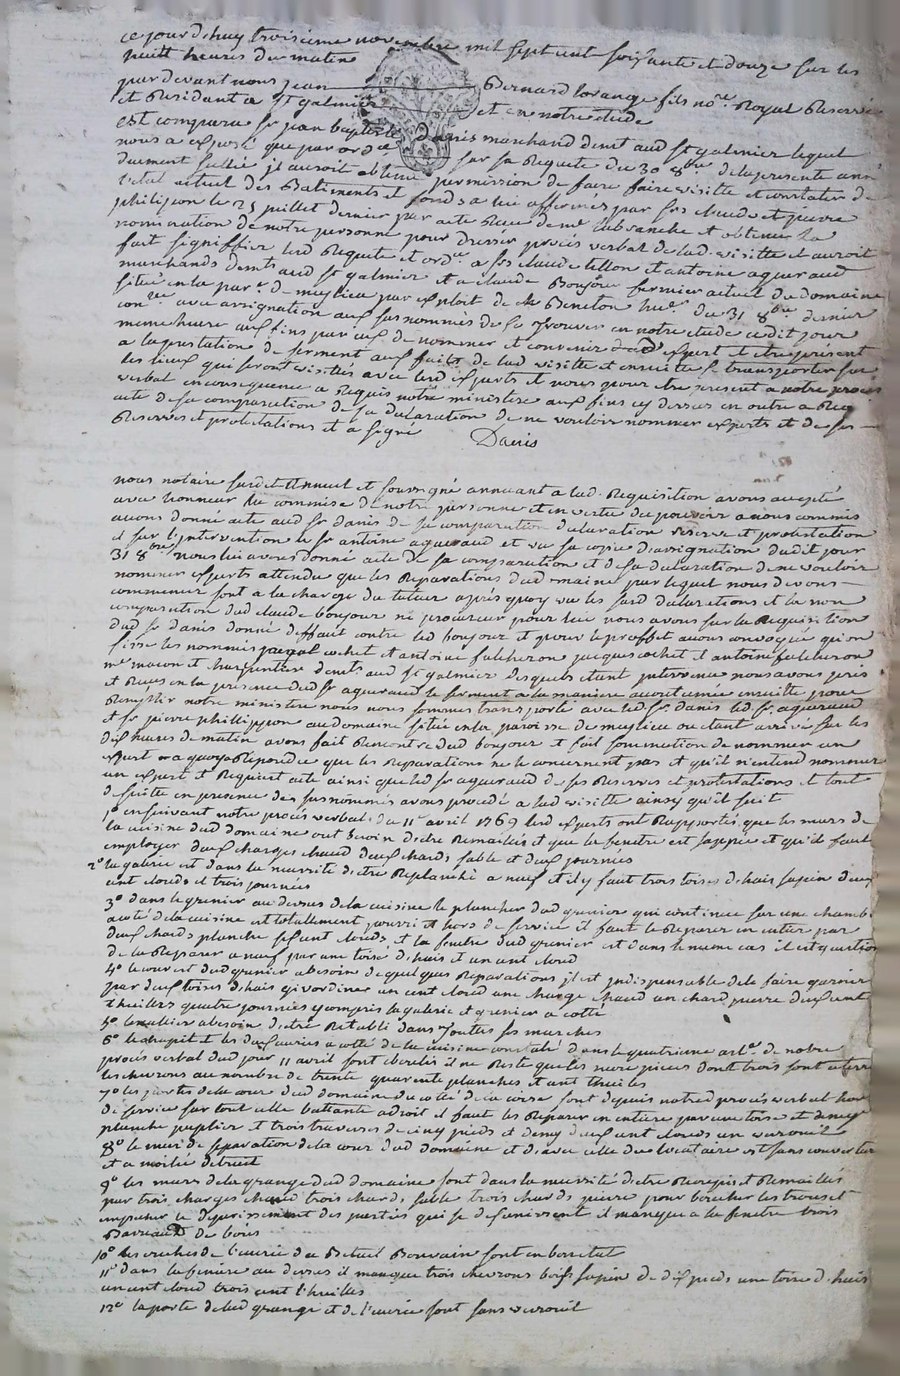 ce jourdhuy troisieme novembre mil sept cent soisante et douze sur les
huitt heures du matin
pardevant nous jean Bernard lorange fils no.re Royal Reservé
et Residant a St galmier et en notre etude
est comparu Sr jean baptiste Danis marchand demt aud St galmier lequel
nous a exposé que par ord.ce sur sa Requete du 30 8bre de la presente anné
duement sellée il auroit obtenu permission de faire faire visitte et constater de
l'etat actuel des Batiments et fonds a lui affermés par Srs claude et pierre
philipon le 25 juillet dernier par acte Recu de me et obtenu la
nomination de notre personne pour dresser procés verbal de lad. visitte et auroit
fait signiffier lesd Requete et ord.ce a Srs claude et antoine agueraud
marchands demts aud St galmier et a claude Bonjour fermier actuel du domaine
situé en la par.e de meylieu par exploit de Me Beneton hu.er du 31 8bre dernier
con.lée avec assignation aux susnommés de se trouver en notre etude cedit jour
meme heure aux fins par eux de nommer et convenir dexpert et etre present
a la prestation de serment aux faits de lad visitte et ensuitte se transporter sur
les lieux qui seront visités avec lesd experts et nous pour etre present a notre procés
verbal en consequence a Requis notre ministere aux fins cy dessus en outre a Req
acte de sa comparution de sa declaration de ne vouloir nommer experts et de ses
Reserves et protestations et a signé Danis
nous notaire susdit et soussigné annuant a lad. Requisition avons accepté
avec honneur la commise de notre personne et en vertu du pouvoir a nous commis
avons donné acte aud Sr danis de sa comparution declaration reserve et protestation
et sur l'intervention de Sr antoine agueraud et vu sa copie d'assignation dudit jour
31 8bre nous lui avons donné acte de sa comparution et de sa declaration de ne vouloir
nommer experts attendu que les Reparations dud domaine par lequel nous devons
commencer sont a la charge du apres quoy vu les susd declarations et la non
comparution dud claude bonjour ni procureur pour lui nous avons sur la Requisition
dud Sr danis donné deffaut contre led bonjour et pour le proffit avons convoqué qu'on
fisse les nommés jacques cochet et antoine fulcheron jacques cochet et antoine fulcheron
me macon et charpentier demts aud St galmier lesquels etant intervenu nous avons pris
et Recus en la presence dud Sr agueraud le serment a la maniere accoutumée ensuitte pour
Remplir notre ministere nous nous sommes transporté avec led Sr danis led Sr agueraud
et Sr pierre philippon au domaine situé en la paroisse de meylieu ou etant arrivé sur les
dix heures de matin avons fait Rencontre dud bonjour et fait sommation de nommer un
expert a quoy a Repondu que les Reparations ne le concernent pas et qu'il n'entend nommer
un expert et Requiert acte ainsi que led Sr agueraud de ses Reserves et protestations et tout
de suitte en presence des susnommés avons procedé a lad visitte ainsy qu'il suit
1o en suivant notre procés verbal du 11e avril 1769 les experts ont Rapportés que les murs de
la cuisine dud domaine ont besoin detre Remaillés et que la fenetre est sappée et qu'il faut
employer deux charges chaud deux chards sable et deux journées
2o la galerie est dans la necessité d'etre Replanché a neuf et il y faut trois toises d'hais sapin deux
cent clouds et trois journées
3o dans le grenier au dessus de la cuisine le plancher dud grenier qui continue sur une chambre
a coté de la cuisine est totallement pourri et hors de service il faut le Reparer en entier par
deux chards planche sept cent clouds et la fenetre dud grenier est dans le meme cas il est question
de la Reparer a neuf par une toise d'hais et un cent cloud
4o le couvert dud grenier a besoin de quelques Reparations il est indispensable de le faire garnir
par deux toises d'hais givordines un cent cloud une charge chaud un chard pierre deux cent
thuilles quatre journées y compris la galerie et grenier a cotte
5o lescallier a besoin d'etre Retabli dans toutes ses marches
6o le chapit et les deux ecuries a cotté de la cuisine constaté dans le quatrieme art.e de notre
procés verbal dud jour 11 avril sont ecroulés il ne Reste que les mere pieces dont trois sont a terre
les chevrons au nombre de trente quarente planches et cent thuilles
7o les portes de la cour dud domaine du coté de la sont depuis notred procés verbal hors
de service sur tout celle battante adroit il faut les Reparer en entier par une toise et demy
planche puplier et trois traverses de cinq pieds et demy deux cent clouds un verouil
8o le mur de separation de la cour dud domaine et d'avec celle du locataire est sans couverture
et a moitié detruit
9o les murs de la grange dud domaine sont dans la necessité d'etre Recrepis et Remaillés
par trois charges chaud trois chards sable trois chards pierre pour boucher les trous et
empecher le deperissement des parties qui se desunissent il manque a la fenetre trois
Barreaux de bois
10o les creches de l'ecurie du Betail Bouvain sont en bon etat
11o dans la feniere au dessus il manque trois chevrons bois sapin de dix pieds une toise d'hais
un cent cloud trois cent thuilles
12o la porte de lad grange et de l'ecurie sont sans verouil